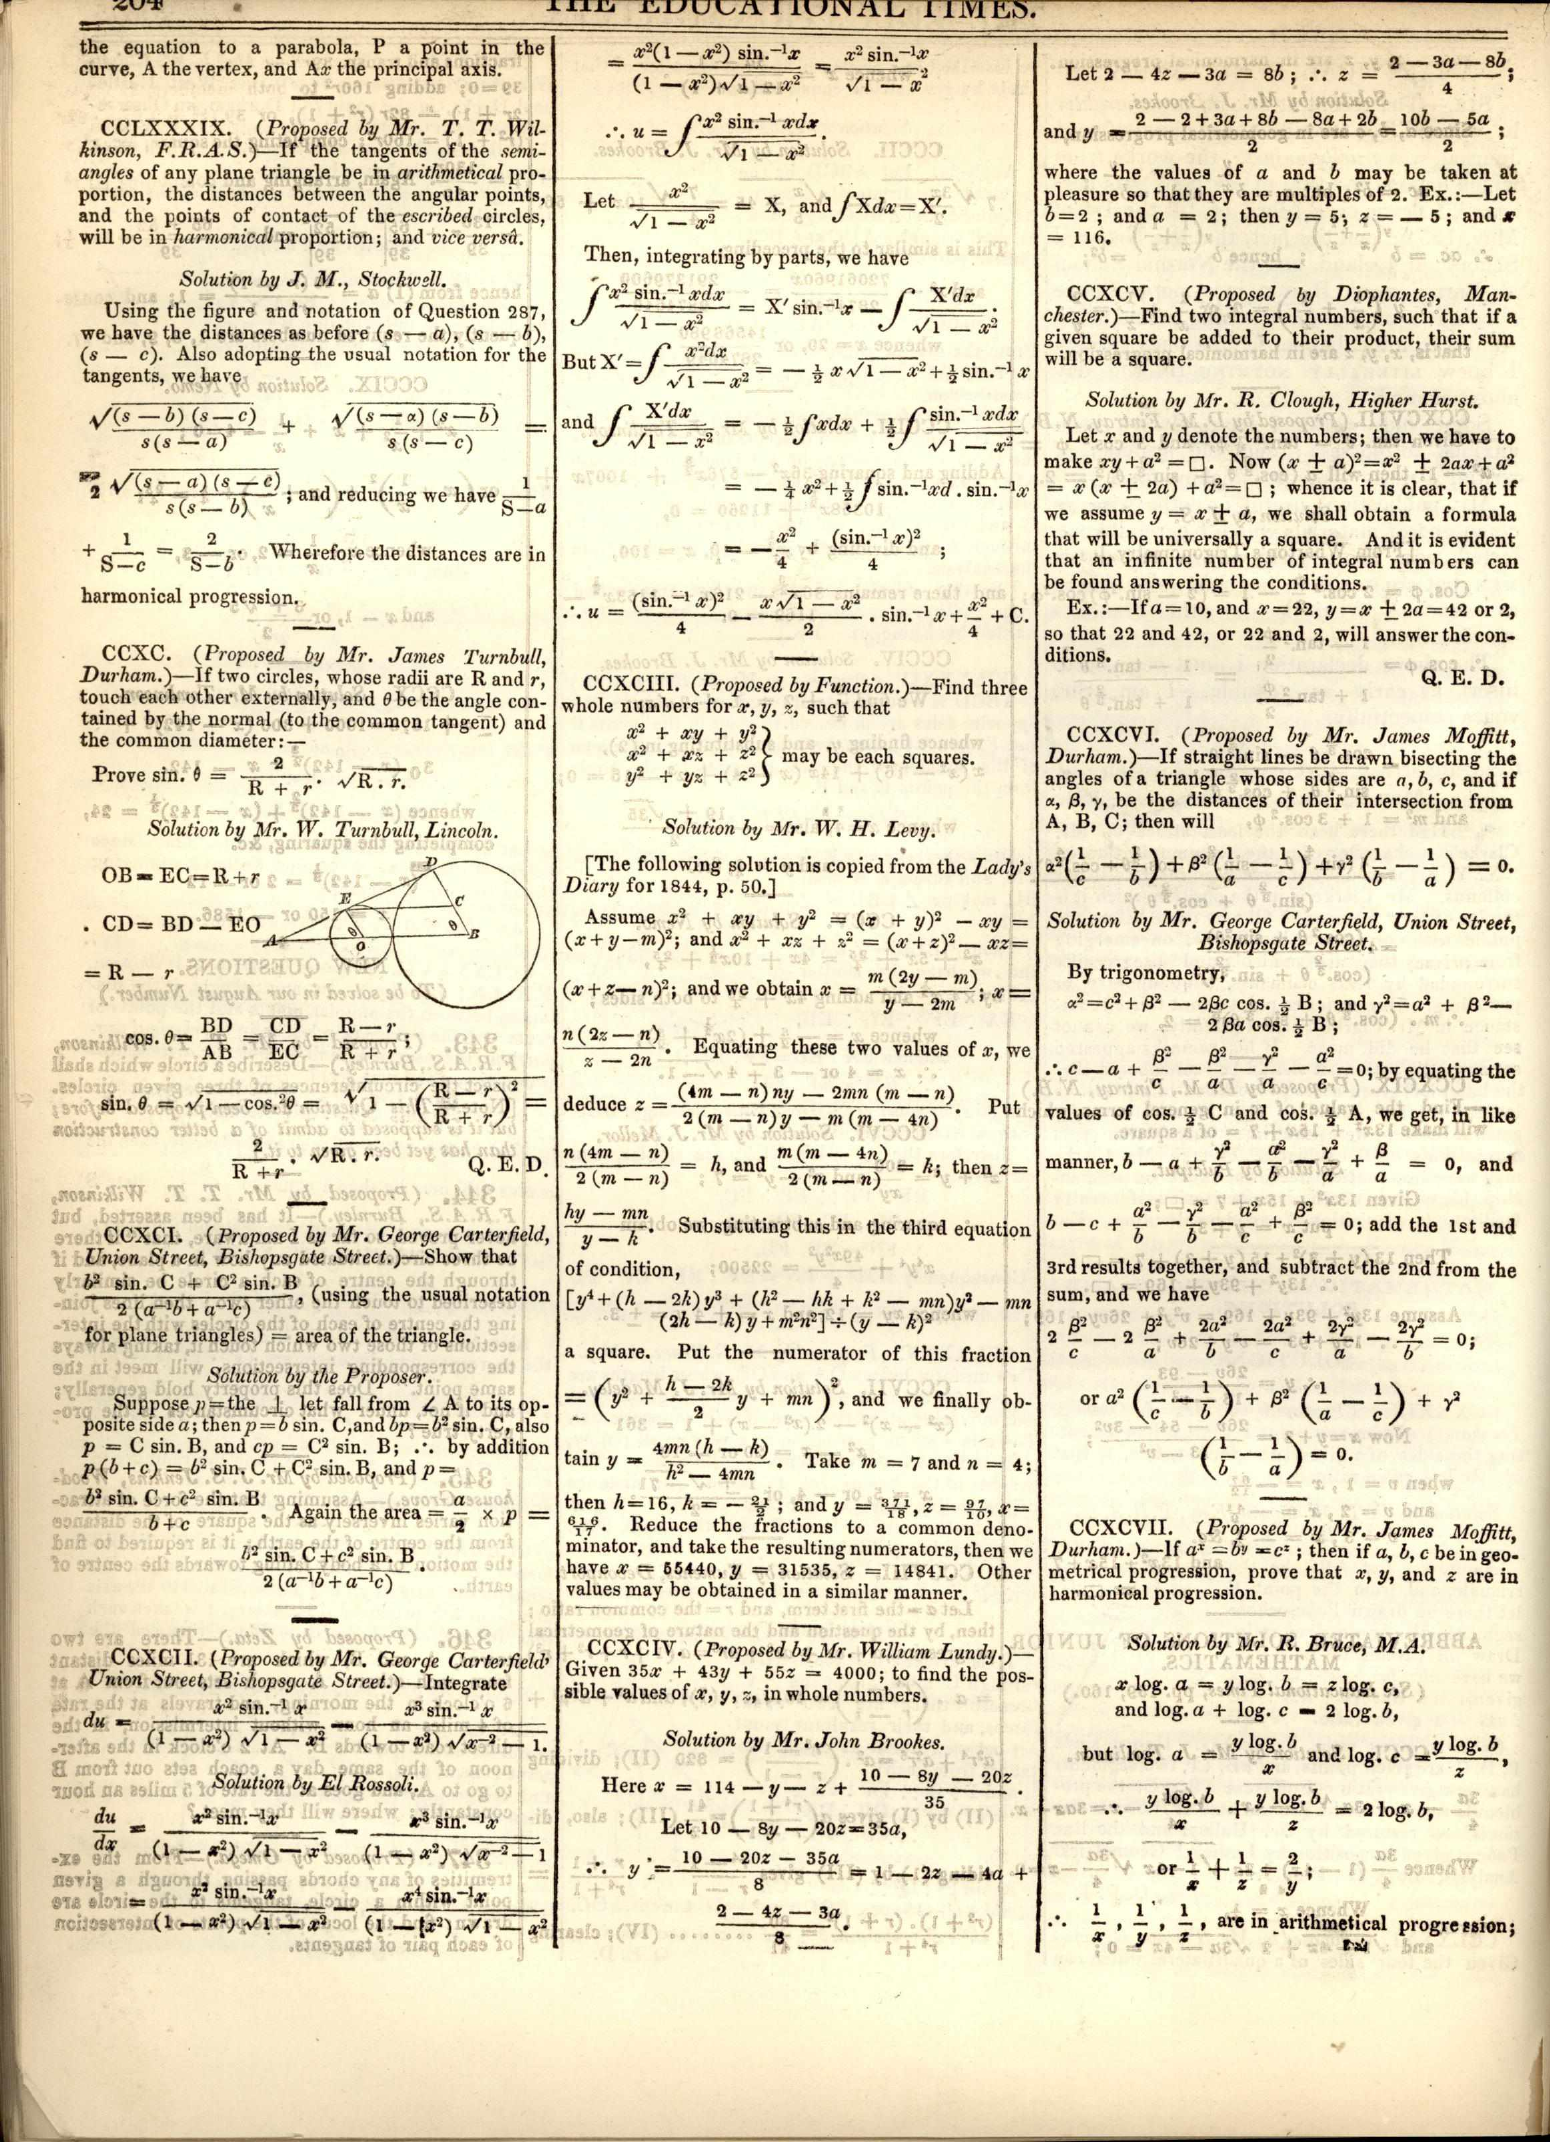 204
THE EDUCATIONAL TIMES.
the equation to a parabola, P a point in the
curve, A the vertex, and Ax the principal axis.
CCLXXXIX. (Proposed by Mr. T. T. Wil-
kinson, F.R.A.S.)—If the tangents of the semi-
angles of any plane triangle be in arithmetical pro-
portion, the distances between the angular points,
and the points of contact of the escribed circles,
will be in harmonical proportion; and vice versâ.
Solution by J. M., Stockwell.
Using the figure and notation of Question 287,
we have the distances as before (s — a), (s — b),
(s — c). Also adopting the usual notation for the
tangents, we have
√(s — b) (s — c) / s (s — a) + √(s — a) (s — b) / s (s — c) =
2 √(s — a) (s — c) / s (s — b) ; and reducing we have 1 / S—a
+ 1 / S—c = 2 / S—b . Wherefore the distances are in
harmonical progression.
CCXC. (Proposed by Mr. James Turnbull,
Durham.)—If two circles, whose radii are R and r,
touch each other externally, and θ be the angle con-
tained by the normal (to the common tangent) and
the common diameter:—
Prove sin. θ = 2 / R + r . √R . r.
Solution by Mr. W. Turnbull, Lincoln.
OB = EC = R + r
. CD = BD — EO
= R — r
A E D C B O θ θ
cos. θ = BD / AB = CD / EC = R — r / R + r ;
sin. θ = √1 — cos.²θ = √1 — (R — r / R + r)² =
2 / R + r . √R . r.
Q. E. D.
CCXCI. (Proposed by Mr. George Carterfield,
Union Street, Bishopsgate Street.)—Show that
b² sin. C + C² sin. B / 2 (a⁻¹b + a⁻¹c) , (using the usual notation
for plane triangles) = area of the triangle.
Solution by the Proposer.
Suppose p = the ⊥ let fall from ∠ A to its op-
posite side a; then p = b sin. C, and bp = b² sin. C, also
p = C sin. B, and cp = C² sin. B; ∴ by addition
p (b + c) = b² sin. C + C² sin. B, and p =
b² sin. C + c² sin. B / b + c . Again the area = a / 2 × p =
b² sin. C + c² sin. B / 2 (a⁻¹b + a⁻¹c) .
CCXCII. (Proposed by Mr. George Carterfield,
Union Street, Bishopsgate Street.)—Integrate
du = x² sin.⁻¹ x / (1 — x²) √1 — x² — x³ sin.⁻¹ x / (1 — x²) √x⁻² — 1.
Solution by El Rossoli.
du / dx = x² sin.⁻¹x / (1 — x²) √1 — x² — x³ sin.⁻¹x / (1 — x²) √x⁻² — 1
= x² sin.⁻¹x / (1 — x²) √1 — x² — x⁴ sin.⁻¹x / (1 — x²) √1 — x²
= x²(1 — x²) sin.⁻¹x / (1 — x²)√1 — x² = x² sin.⁻¹x / √1 — x²
∴ u = ∫ x² sin.⁻¹ xdx / √1 — x² .
Let x² / √1 — x² = X, and ∫Xdx = X′.
Then, integrating by parts, we have
∫ x² sin.⁻¹ xdx / √1 — x² = X′ sin.⁻¹x — ∫ X′dx / √1 — x² .
But X′ = ∫ x²dx / √1 — x² = — ½ x √1 — x² + ½ sin.⁻¹ x
and ∫ X′dx / √1 — x² = — ½ ∫ xdx + ½ ∫ sin.⁻¹ xdx / √1 — x²
= — ¼ x² + ½ ∫ sin.⁻¹xd . sin.⁻¹x
= — x² / 4 + (sin.⁻¹ x)² / 4 ;
∴ u = (sin.⁻¹ x)² / 4 — x√1 — x² / 2 . sin.⁻¹ x + x² / 4 + C.
CCXCIII. (Proposed by Function.)—Find three
whole numbers for x, y, z, such that
x² + xy + y²
x² + xz + z² } may be each squares.
y² + yz + z²
Solution by Mr. W. H. Levy.
[The following solution is copied from the Lady's
Diary for 1844, p. 50.]
Assume x² + xy + y² = (x + y)² — xy =
(x + y — m)²; and x² + xz + z² = (x + z)² — xz =
(x + z — n)²; and we obtain x = m (2y — m) / y — 2m ; x =
n (2z — n) / z — 2n . Equating these two values of x, we
deduce z = (4m — n) ny — 2mn (m — n) / 2 (m — n) y — m (m — 4n) . Put
n (4m — n) / 2 (m — n) = h, and m (m — 4n) / 2 (m — n) = k; then z =
hy — mn / y — k . Substituting this in the third equation
of condition,
[y⁴ + (h — 2k) y³ + (h² — hk + k² — mn)y² — mn
(2h — k) y + m²n²] ÷ (y — k)²
a square. Put the numerator of this fraction
= (y² + h — 2k / 2 y + mn)², and we finally ob-
tain y = 4mn (h — k) / h² — 4mn . Take m = 7 and n = 4;
then h = 16, k = — 21/2 ; and y = 371/18, z = 97/10, x =
616/17. Reduce the fractions to a common deno-
minator, and take the resulting numerators, then we
have x = 55440, y = 31535, z = 14841. Other
values may be obtained in a similar manner.
CCXCIV. (Proposed by Mr. William Lundy.)—
Given 35x + 43y + 55z = 4000; to find the pos-
sible values of x, y, z, in whole numbers.
Solution by Mr. John Brookes.
Here x = 114 — y — z + 10 — 8y — 20z / 35 .
Let 10 — 8y — 20z = 35a,
∴ y = 10 — 20z — 35a / 8 = 1 — 2z — 4a +
2 — 4z — 3a / 8 .
Let 2 — 4z — 3a = 8b ; ∴ z = 2 — 3a — 8b / 4 ;
and y = 2 — 2 + 3a + 8b — 8a + 2b / 2 = 10b — 5a / 2 ;
where the values of a and b may be taken at
pleasure so that they are multiples of 2. Ex.:—Let
b = 2 ; and a = 2; then y = 5; z = — 5 ; and x
= 116.
CCXCV. (Proposed by Diophantes, Man-
chester.)—Find two integral numbers, such that if a
given square be added to their product, their sum
will be a square.
Solution by Mr. R. Clough, Higher Hurst.
Let x and y denote the numbers; then we have to
make xy + a² = □. Now (x ± a)² = x² ± 2ax + a²
= x (x ± 2a) + a² = □ ; whence it is clear, that if
we assume y = x ± a, we shall obtain a formula
that will be universally a square. And it is evident
that an infinite number of integral numbers can
be found answering the conditions.
Ex.:—If a = 10, and x = 22, y = x ± 2a = 42 or 2,
so that 22 and 42, or 22 and 2, will answer the con-
ditions.
Q. E. D.
CCXCVI. (Proposed by Mr. James Moffitt,
Durham.)—If straight lines be drawn bisecting the
angles of a triangle whose sides are a, b, c, and if
α, β, γ, be the distances of their intersection from
A, B, C; then will
α²(1/c — 1/b) + β² (1/a — 1/c) + γ² (1/b — 1/a) = 0.
Solution by Mr. George Carterfield, Union Street,
Bishopsgate Street.
By trigonometry,
α² = c² + β² — 2βc cos. ½ B ; and γ² = a² + β² —
2 βa cos. ½ B ;
∴ c — a + β²/c — β²/a — γ²/a — α²/c = 0; by equating the
values of cos. ½ C and cos. ½ A, we get, in like
manner, b — a + γ²/b — α²/b — γ²/a + β/a = 0, and
b — c + α²/b — γ²/b — α²/c + β²/c = 0; add the 1st and
3rd results together, and subtract the 2nd from the
sum, and we have
2 β²/c — 2 β²/a + 2α²/b — 2α²/c + 2γ²/a — 2γ²/b = 0;
or α² (1/c — 1/b) + β² (1/a — 1/c) + γ²
(1/b — 1/a) = 0.
CCXCVII. (Proposed by Mr. James Moffitt,
Durham.)—If aˣ = bʸ = cᶻ ; then if a, b, c be in geo-
metrical progression, prove that x, y, and z are in
harmonical progression.
Solution by Mr. R. Bruce, M.A.
x log. a = y log. b = z log. c,
and log. a + log. c = 2 log. b,
but log. a = y log. b / x and log. c = y log. b / z ,
∴ y log. b / x + y log. b / z = 2 log. b,
or 1/x + 1/z = 2/y ;
∴ 1/x , 1/y , 1/z , are in arithmetical progression;